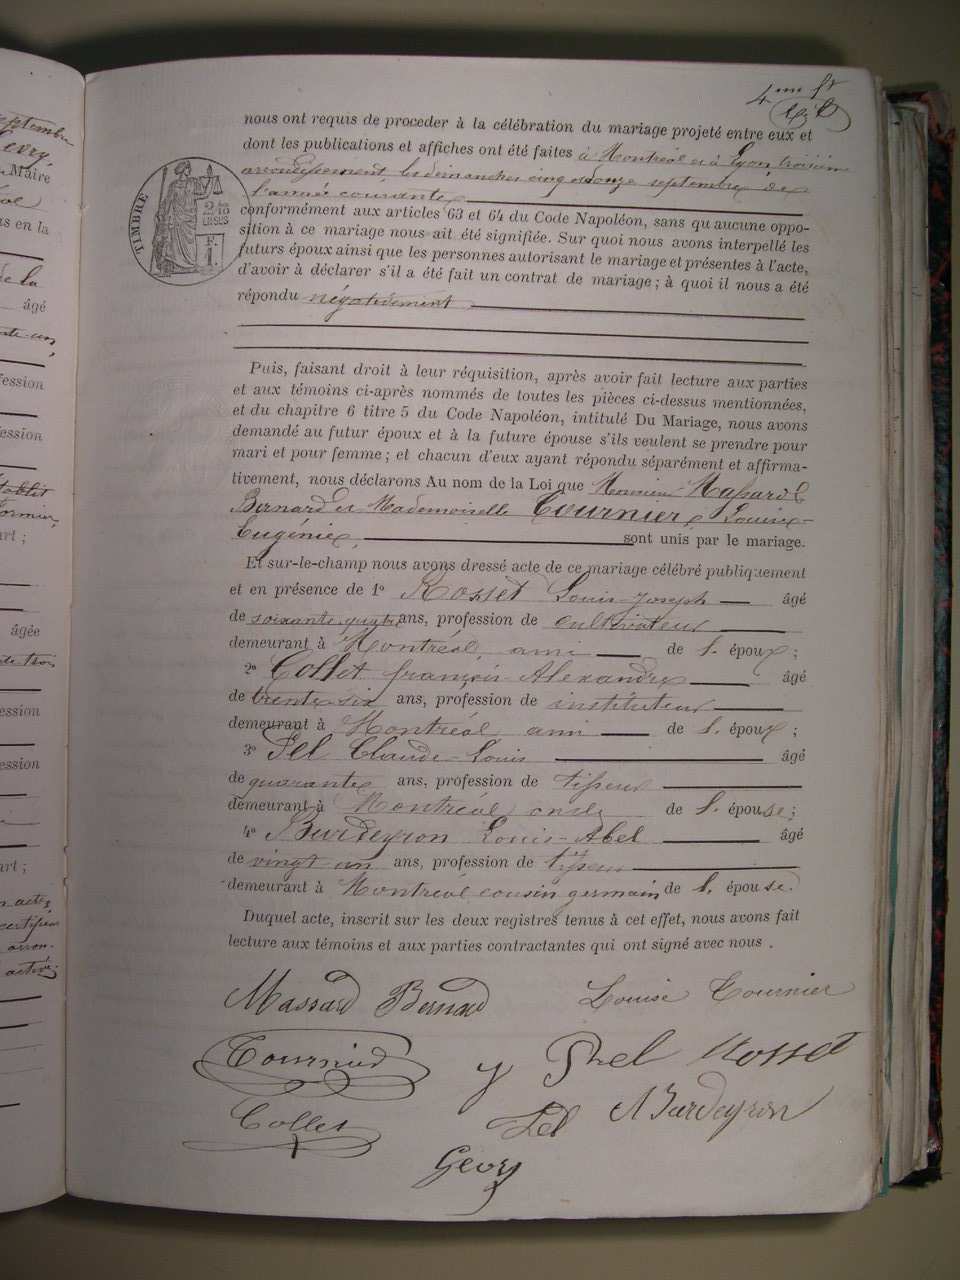 4me ft
nous ont requis de procéder à la célébration du mariage projeté entre eux et
dont les publications et affiches ont été faites à Montréal et à Lyon troisième
arrondissement, les dimanches cinq et onze septembre de
l'année courante
conformément aux articles 63 et 64 du Code Napoléon, sans qu'aucune oppo-
sition à ce mariage nous ait été signifiée. Sur quoi nous avons interpellé les
futurs époux ainsi que les personnes autorisant le mariage et présentes à l'acte,
d'avoir à déclarer s'il a été fait un contrat de mariage; à quoi il nous a été
répondu négativement
TIMBRE
2/10
EN SUS
F.
1.
Puis, faisant droit à leur réquisition, après avoir fait lecture aux parties
et aux témoins ci-après nommés de toutes les pièces ci-dessus mentionnées,
et du chapitre 6 titre 5 du Code Napoléon, intitulé Du Mariage, nous avons
demandé au futur époux et à la future épouse s'ils veulent se prendre pour
mari et pour femme; et chacun d'eux ayant répondu séparément et affirma-
tivement, nous déclarons Au nom de la Loi que Monsieur Massard
Bernard et Mademoiselle Tournier, Louise-
Eugénie, sont unis par le mariage.
Et sur-le-champ nous avons dressé acte de ce mariage célébré publiquement
et en présence de 1o Rosset Louis-Joseph âgé
de soixante quatre ans, profession de cultivateur
demeurant à Montréal, ami de l. époux;
2o Collet françois-Alexandre âgé
de trente-six ans, profession de instituteur
demeurant à Montréal ami de l. époux;
3o Pel Claude-Louis âgé
de quarante ans, profession de tisseur
demeurant à Montréal oncle de l. épouse;
4o Burdeyron Louis-Abel âgé
de vingt un ans, profession de tisseur
demeurant à Montréal cousin germain de l. épouse.
Duquel acte, inscrit sur les deux registres tenus à cet effet, nous avons fait
lecture aux témoins et aux parties contractantes qui ont signé avec nous.
Massard Bernard Louise Tournier
Tournier Pel Rosset
Collet Pel Burdeyron
Gevry
eptembre
evry,
Maire
s en la
de la
âgé
fession
ession
art;
âgée
ession
ession
art;